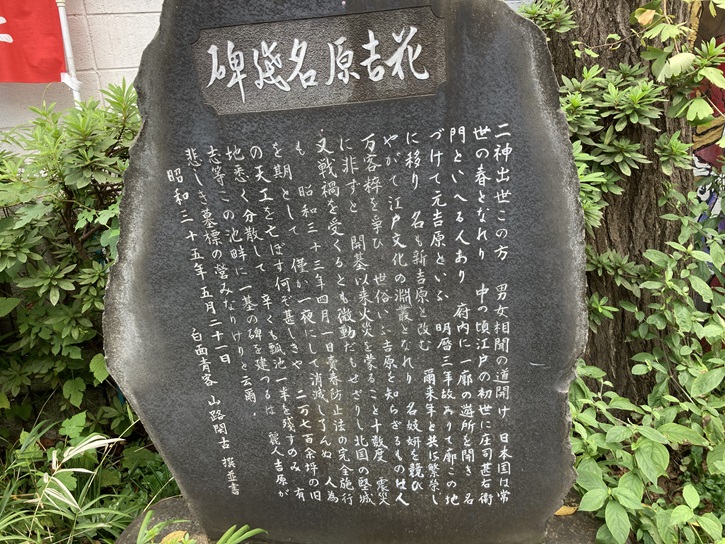 花吉原名残碑
二神出世この方　男女相聞の道開け　日本国は常
世の春となれり　中の頃江戸の初世に庄司甚右衛
門といへる人あり　府内に一廓の遊所を開き　名
づけて元吉原といふ　明暦三年故ありて廓この地
に移り　名も新吉原と改む　爾来年と共に繁栄し
やがて江戸文化の淵叢となれり　名妓妍を競ひ
万客粋を争ひ　世俗いふ吉原を知らざるものは人
に非ずと　開基以来火災を蒙ること十数度　震災
又戦禍を受くるとも微動だもせざりし北国の堅城
も　昭和三十三年四月一日売春防止法の完全施行
を期として　僅か一夜にして消滅し了んぬ　人為
の天工を亡ぼす何ぞ甚しきや　二万七百余坪の旧
地悉く分散して　辛くも瓢池一半を残すのみ　有
志等この池畔に一基の碑を建つるは　麗人吉原が
悲しき墓標の営みなりけりと云爾．
昭和三十五年五月二十一日
白面青客　山路閑古　撰並書